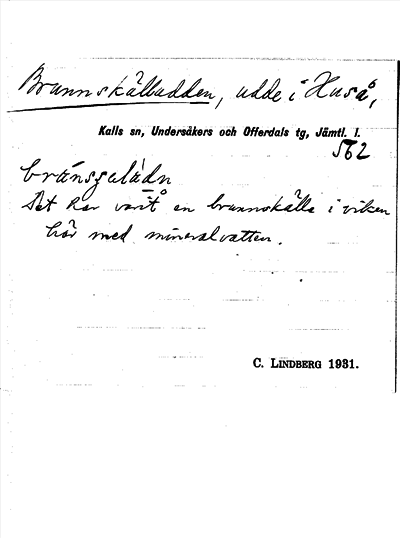 Brunnskälludden, udde i Huså,
Kalls sn, Undersåkers och Offerdals tg, Jämtl. l.
562
Det har varit en brunnskälla i viken
här med mineralvatten.
C. LINDBERG 1931.